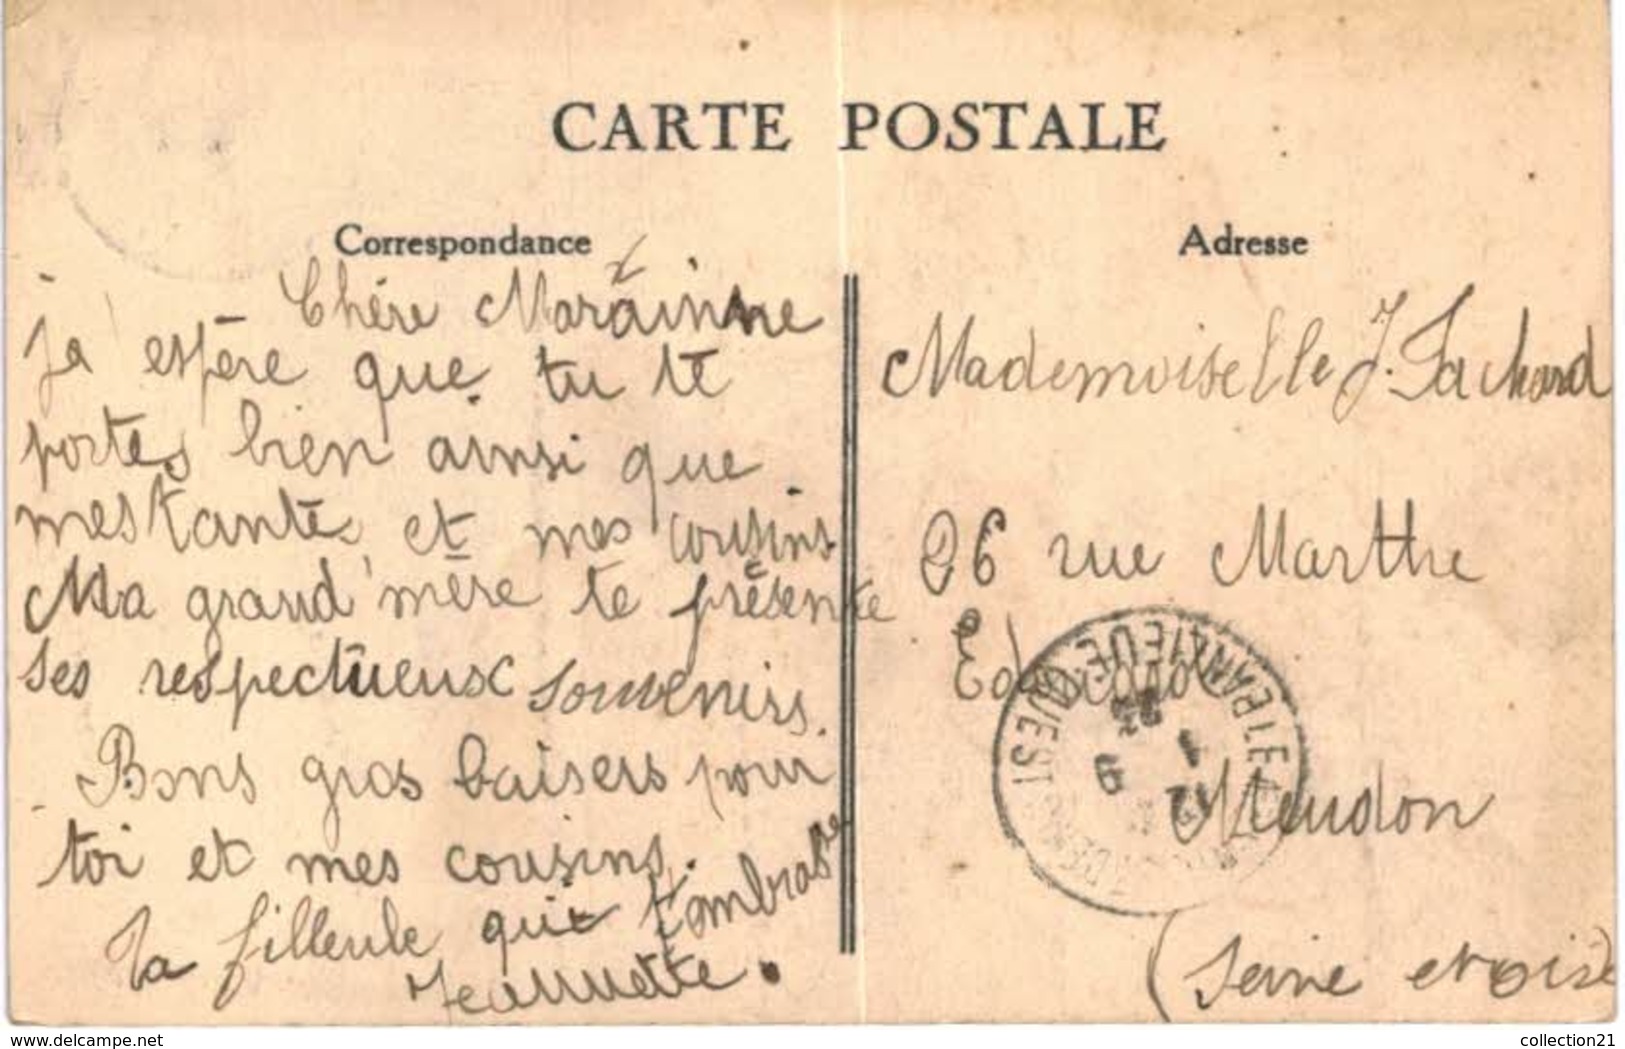 CARTE POSTALE
Correspondance
Chère Marainne
Ja espère que tu te
portes bien ainsi que
mes tante et mes cousins.
Ma grand'mère te présente
ses respectueux souvenirs.
Bons gros baisers pour
toi et mes cousins.
Ta filleule qui t'ombrasse
Jeannette.
Adresse
Mademoiselle J. Fachard
26 rue Marthe
Edouard
Meudon
(Seine et oise
OUEST
12
1
delcampe.net
collection21